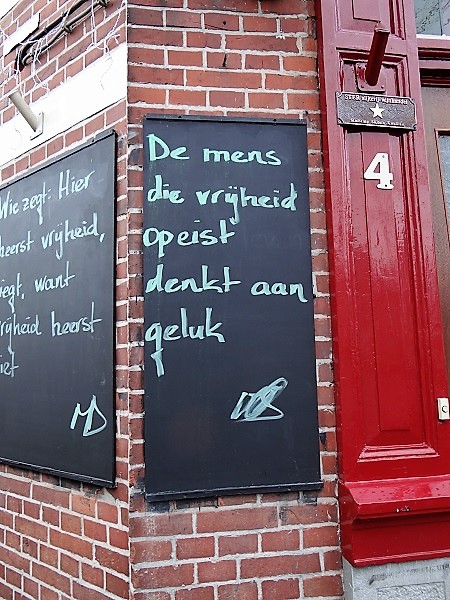 Wie zegt: Hier
heerst vrijheid,
liegt, want
vrijheid heerst
niet
MD
De mens
die vrijheid
opeist
denkt aan
geluk
4